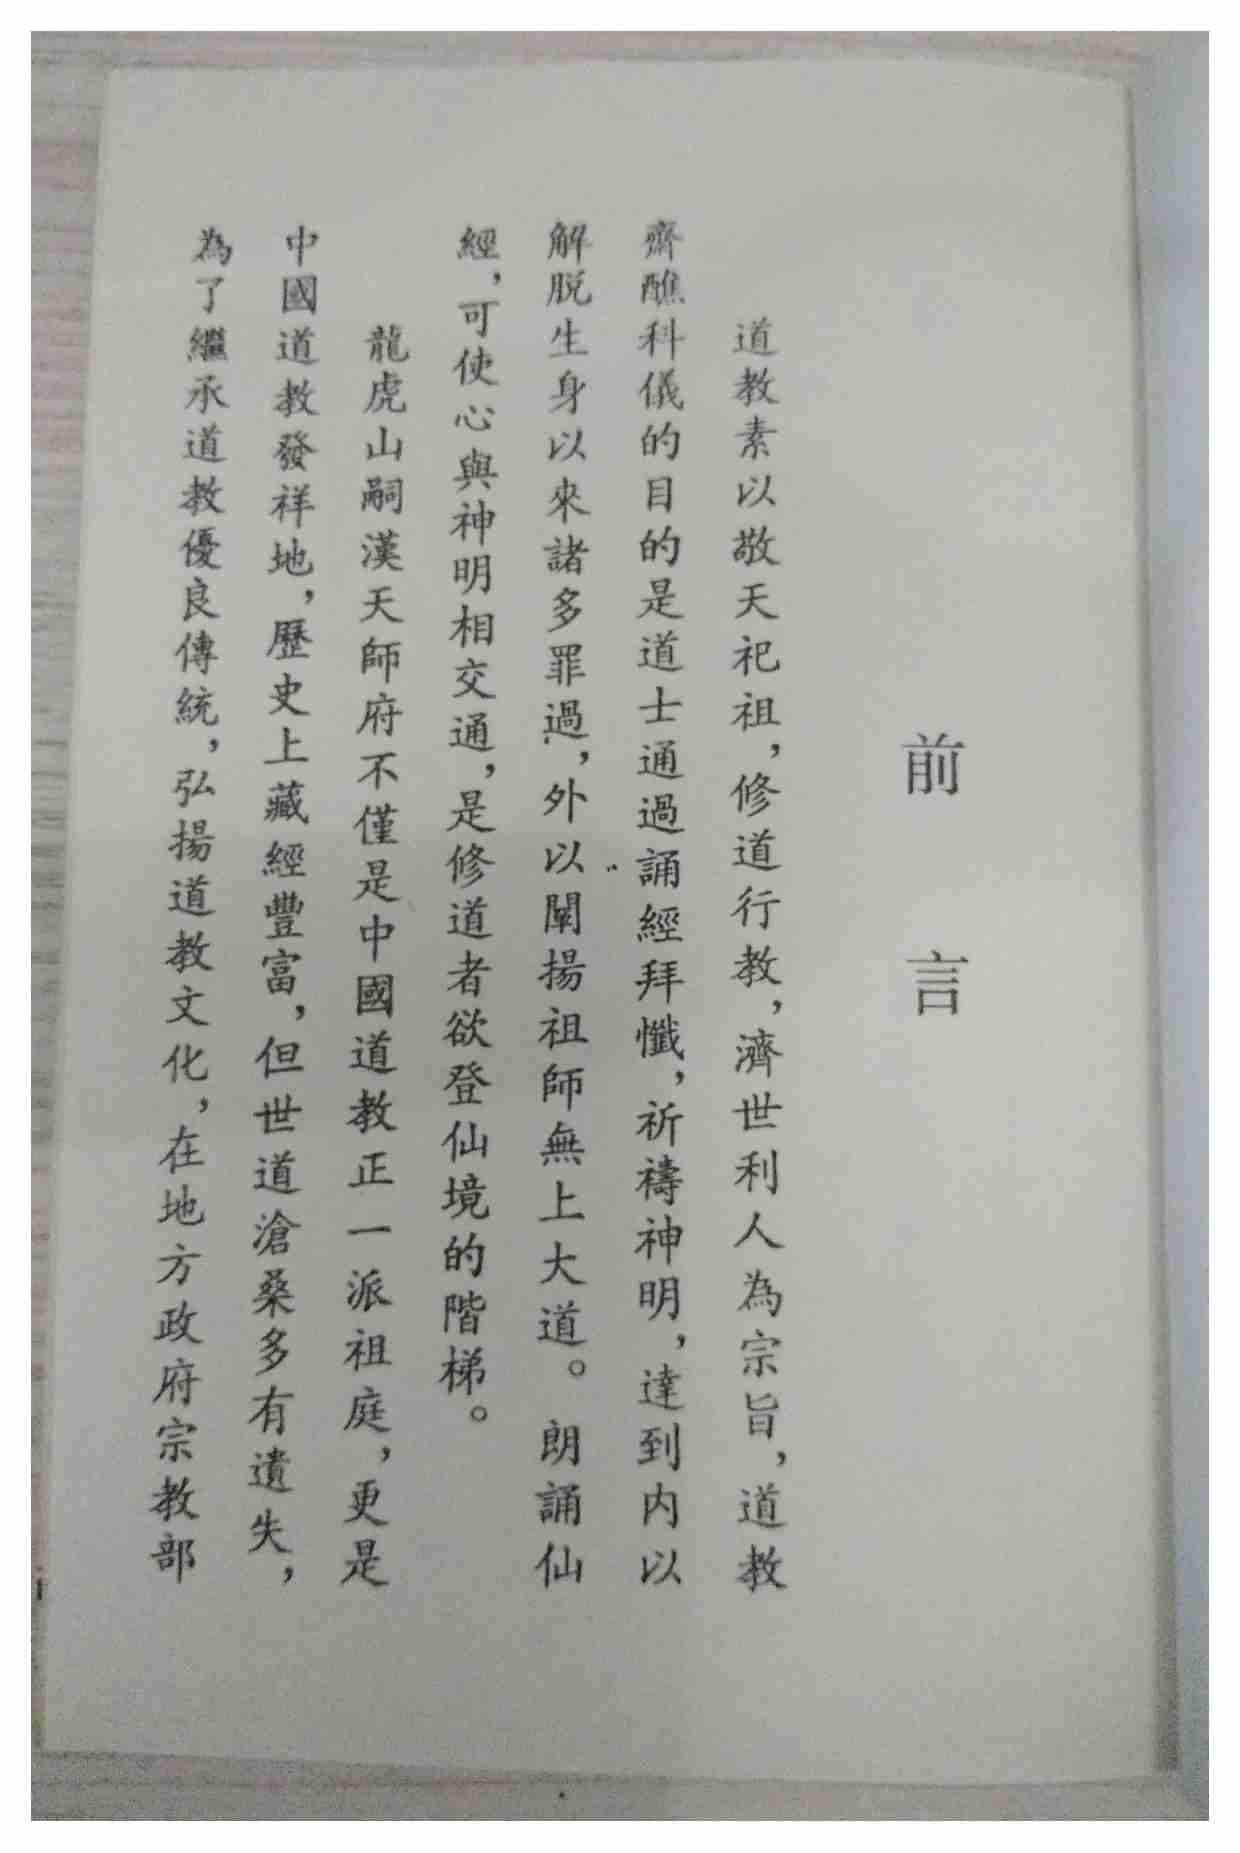 前言
道教素以敬天祀祖，修道行教，濟世利人為宗旨，道教
齋醮科儀的目的是道士通過誦經拜懺，祈禱神明，達到內以
解脱生身以來諸多罪過，外以闡揚祖師無上大道。朗誦仙
經，可使心與神明相交通，是修道者欲登仙境的階梯。
龍虎山嗣漢天師府不僅是中國道教正一派祖庭，更是
中國道教發祥地，歷史上藏經豐富，但世道滄桑多有遺失，
為了繼承道教優良傳統，弘揚道教文化，在地方政府宗教部